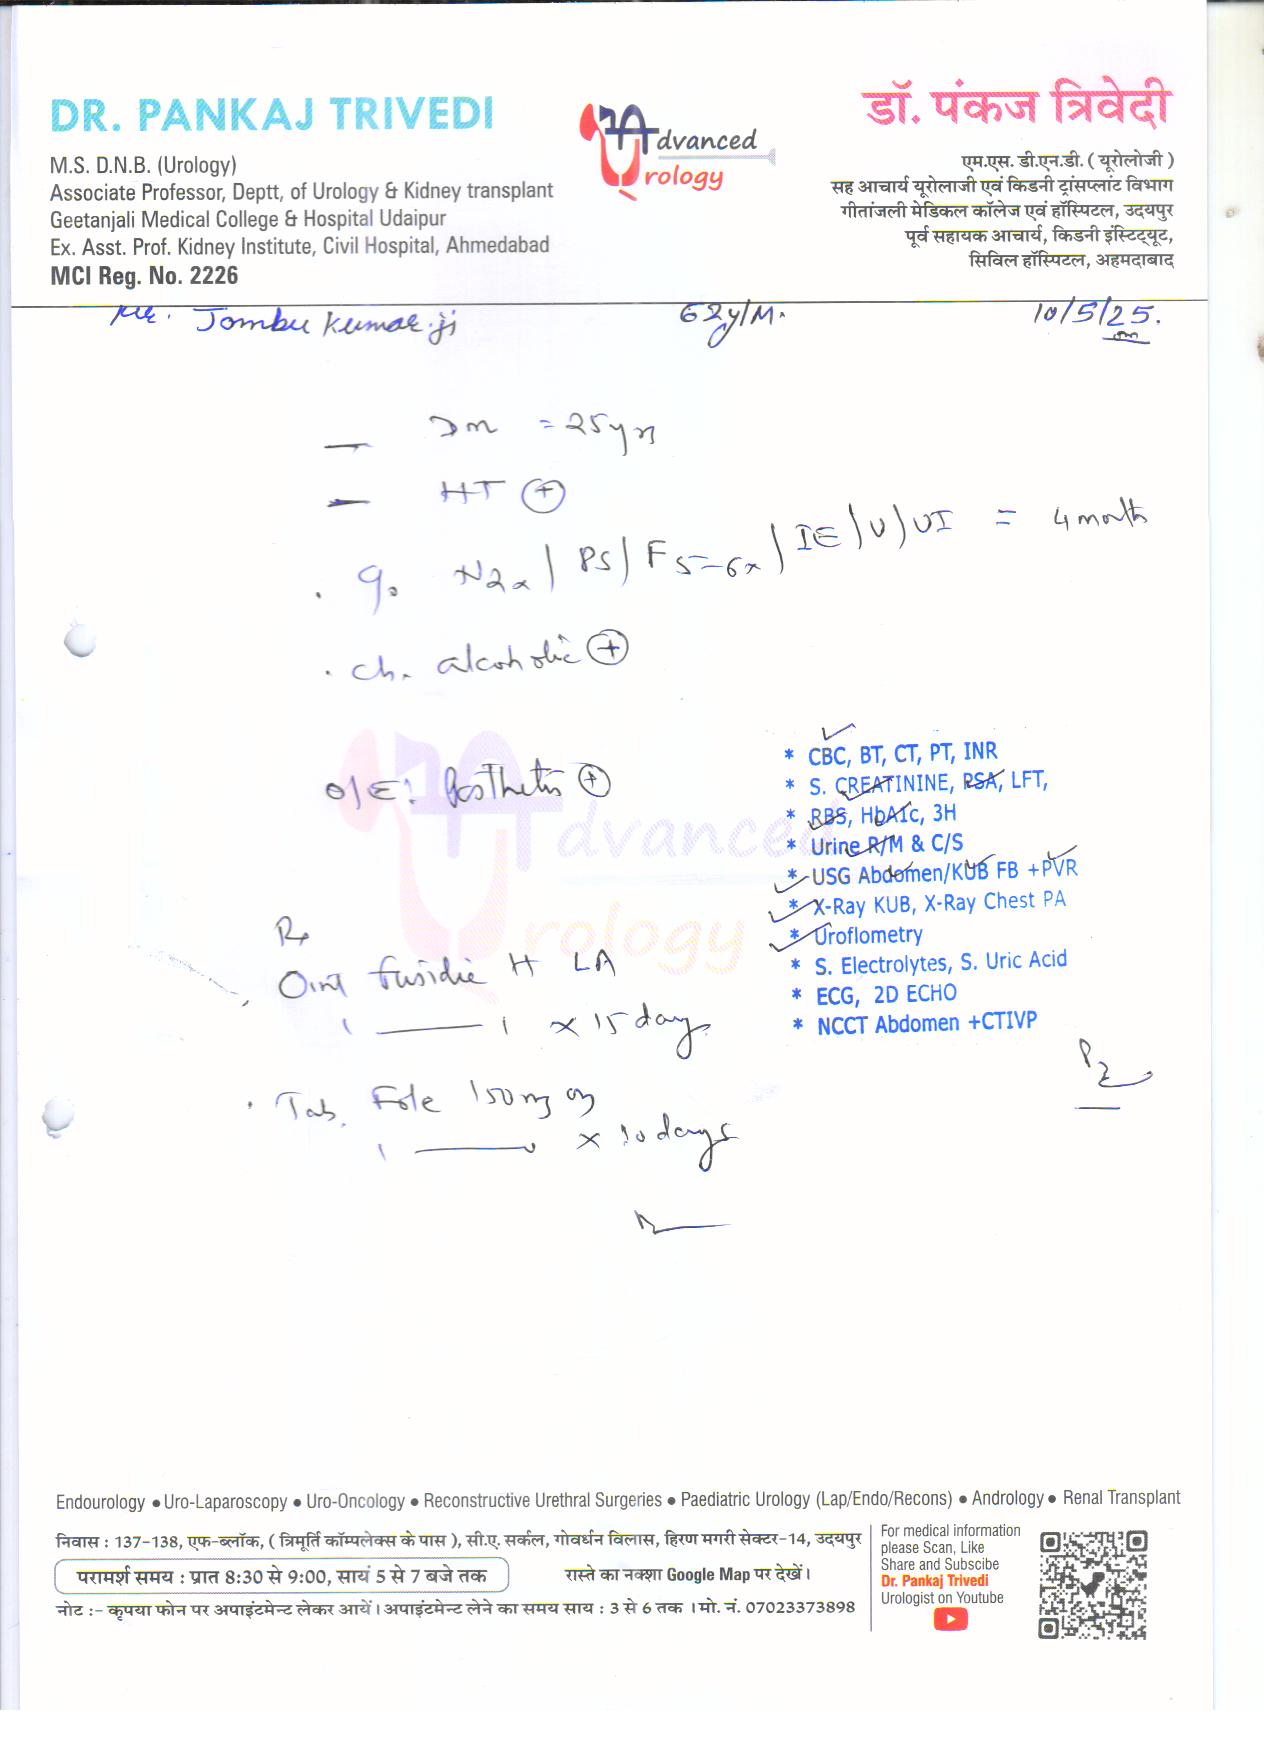 DR. PANKAJ TRIVEDI
M.S. D.N.B. (Urology)
Associate Professor, Deptt, of Urology & Kidney transplant
Geetanjali Medical College & Hospital Udaipur
Ex. Asst. Prof. Kidney Institute, Civil Hospital, Ahmedabad
MCI Reg. No. 2226
Advanced
Urology
डॉ. पंकज त्रिवेदी
एम.एस. डी.एन.डी. ( यूरोलोजी )
सह आचार्य यूरोलाजी एवं किडनी ट्रांसप्लांट विभाग
गीतांजली मेडिकल कॉलेज एवं हॉस्पिटल, उदयपुर
पूर्व सहायक आचार्य, किडनी इंस्टिट्यूट,
सिविल हॉस्पिटल, अहमदाबाद
Mr. Jombu Kumar ji 62y/M. 10/5/25.
— Dm = 25 yrs
— HT (+)
N2x / PS / F 5-6x / IE / U / UI = 4 month
. ch. alcoholic (+)
O/E: (+)
* CBC, BT, CT, PT, INR
* S. CREATININE, PSA, LFT,
* RBS, HbA1c, 3H
* Urine R/M & C/S
* USG Abdomen/KUB FB +PVR
* X-Ray KUB, X-Ray Chest PA
* Uroflometry
* S. Electrolytes, S. Uric Acid
* ECG, 2D ECHO
* NCCT Abdomen +CTIVP
Advanced
Urology
Rx
. Oint Fusidic H LA
1 — 1 x 15 days
. Tab. 150mg
1 — x 10 days
Endourology • Uro-Laparoscopy • Uro-Oncology • Reconstructive Urethral Surgeries • Paediatric Urology (Lap/Endo/Recons) • Andrology • Renal Transplant
निवास : 137-138, एफ-ब्लॉक, ( त्रिमूर्ति कॉम्पलेक्स के पास ), सी.ए. सर्कल, गोवर्धन विलास, हिरण मगरी सेक्टर-14, उदयपुर
परामर्श समय : प्रात 8:30 से 9:00, सायं 5 से 7 बजे तक
रास्ते का नक्शा Google Map पर देखें।
नोट :- कृपया फोन पर अपाइंटमेन्ट लेकर आयें। अपाइंटमेन्ट लेने का समय साय : 3 से 6 तक । मो. नं. 07023373898
For medical information
please Scan, Like
Share and Subscibe
Dr. Pankaj Trivedi
Urologist on Youtube